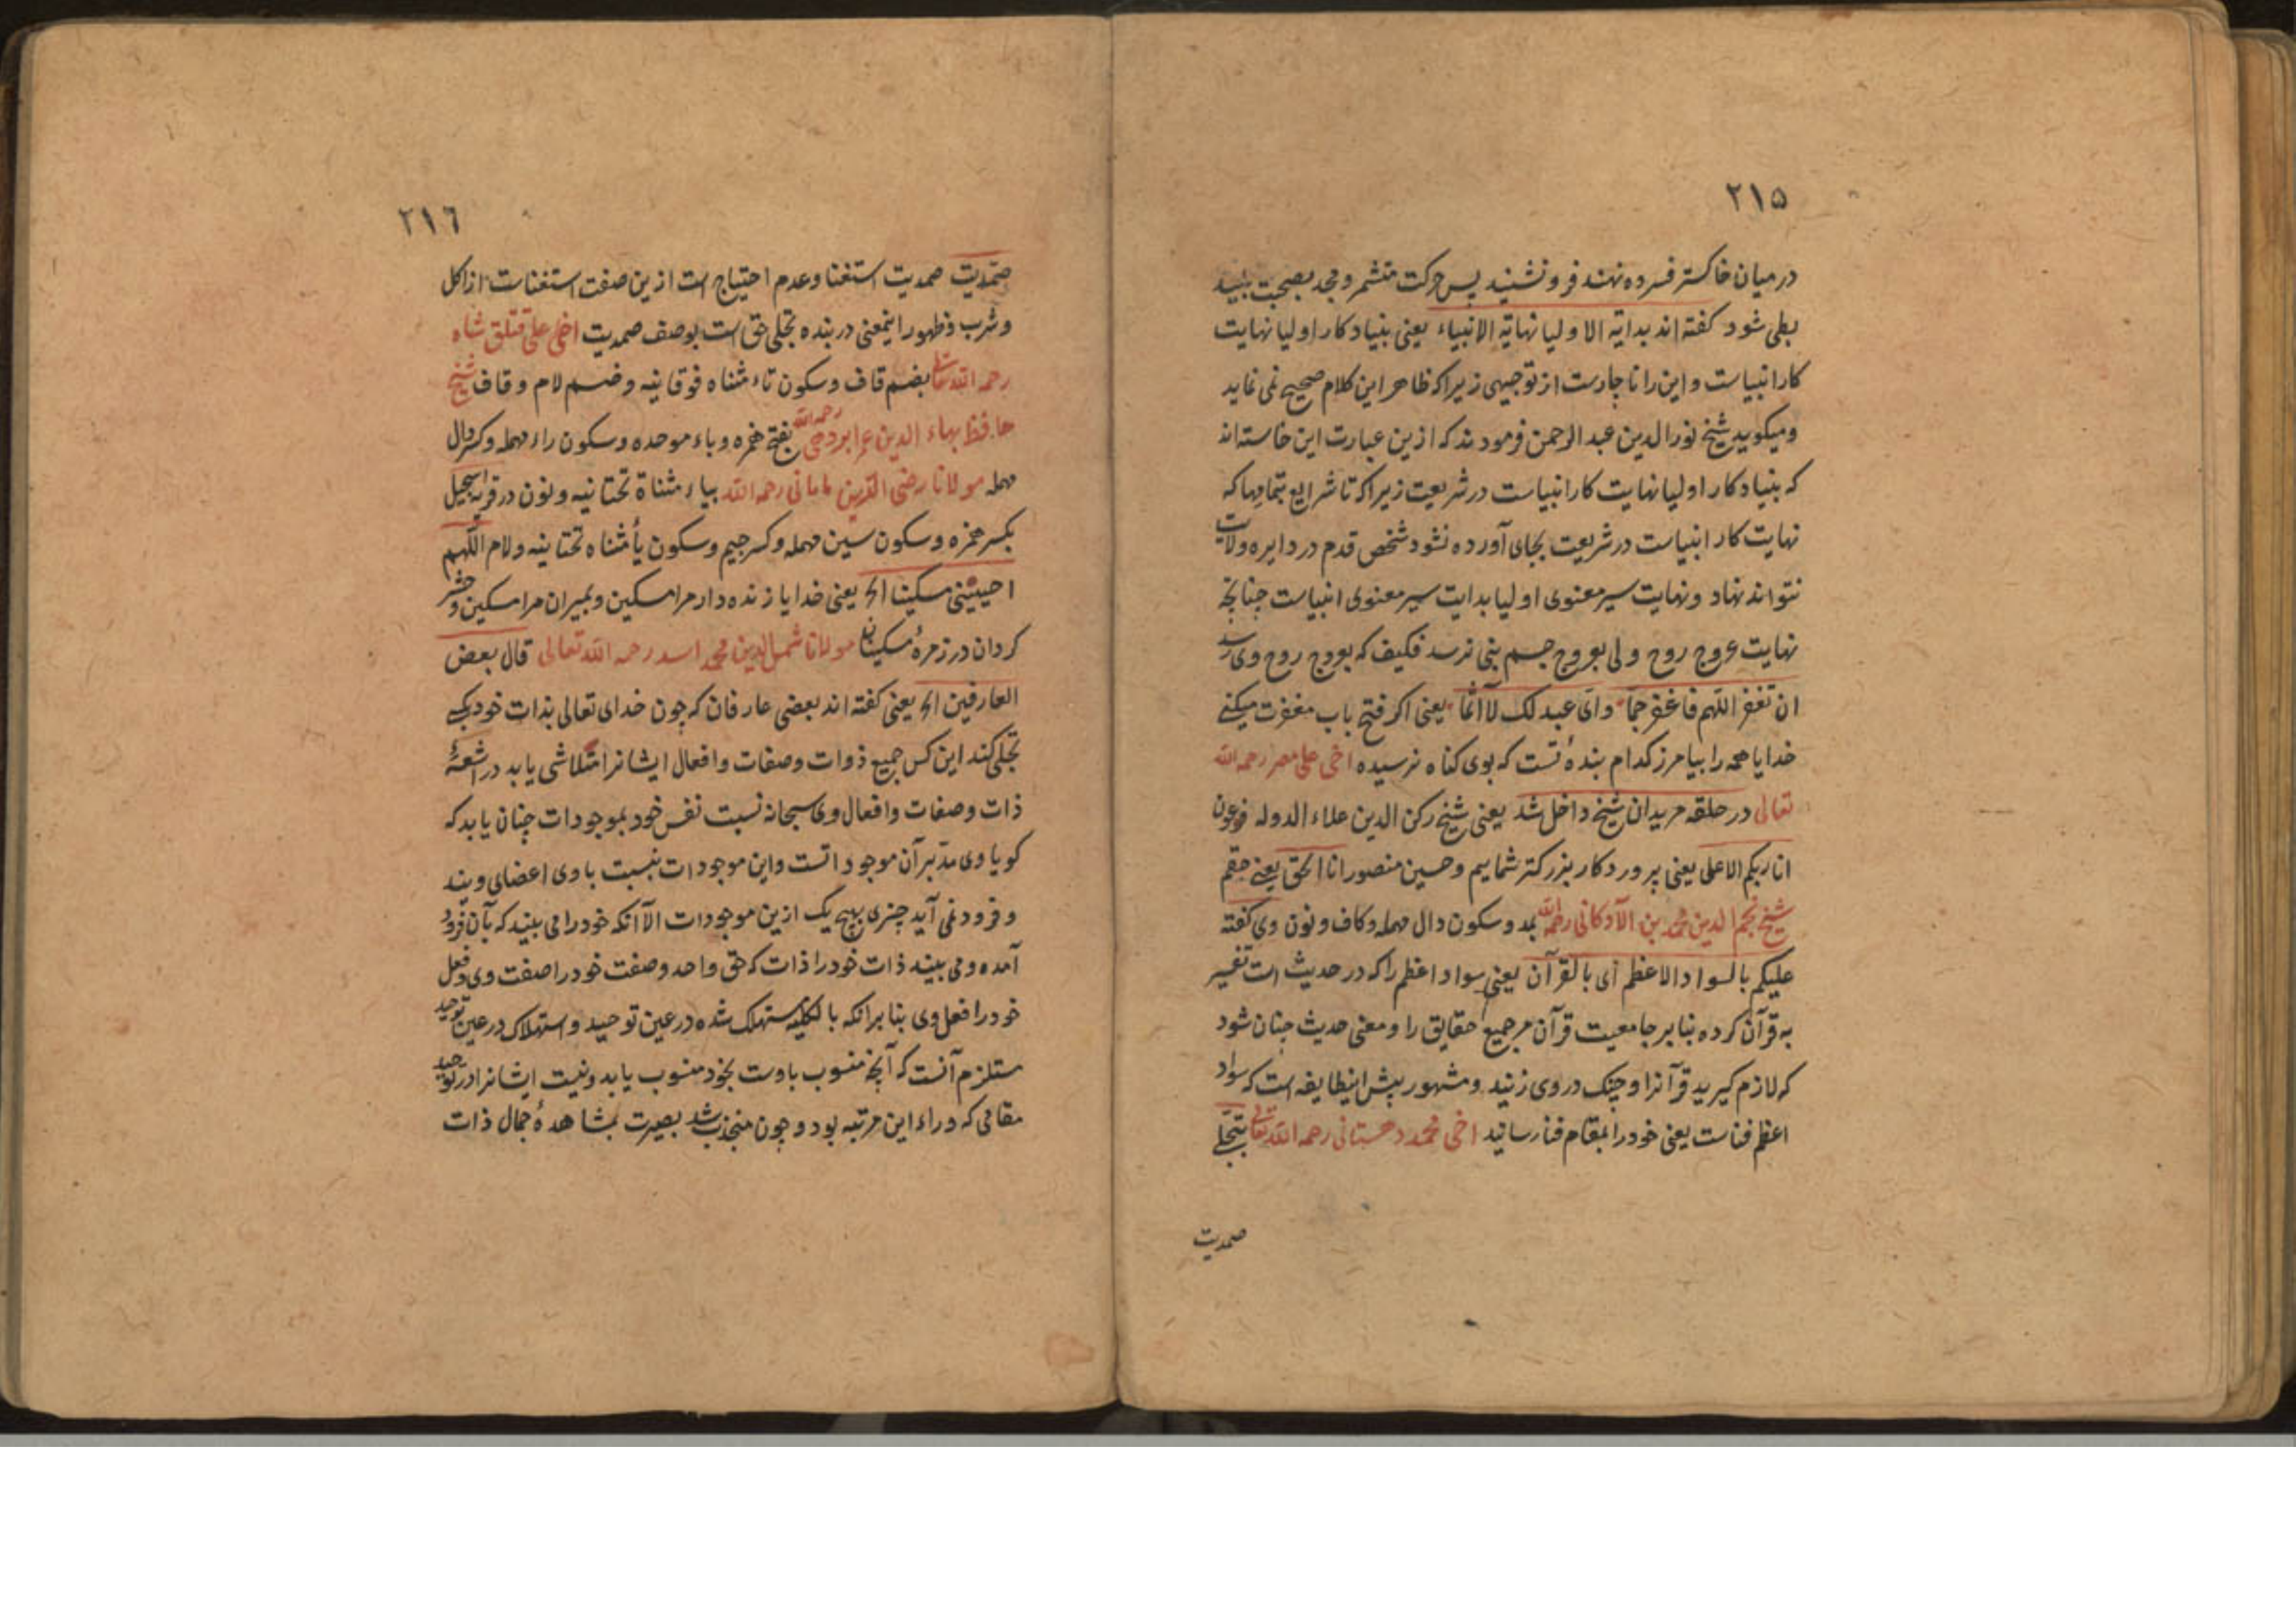 ۲۱۵
در میان خاکستر فسرده نهند فرو نشیند پس حرکت متشمر و مجد بصحبت
بطی شود کفته اند بدایة الاولیا نهایة الانبیاء یعنی بنیاد کار اولیا نهایت
کار انبیاست و این را ناچارست از توجیهی زیرا که ظاهر این کلام صحیح نمی نماید
ومیکوید شیخ نورالدین عبد الرحمن فرمودند که ازین عبارت این خاسته اند
که بنیاد کار اولیا نهایت کار انبیاست در شریعت زیرا که تا شرایع بتمامها که
نهایت کار انبیاست در شریعت بجای آورده نشود شخص قدم در دایره ولایت
نتواند نهاد و نهایت سیر معنوی اولیا بدایت سیر معنوی انبیاست چنانچه
نهایت عروج روح ولی بعروج جسم بنی نرسد فکیف که بعروج روح وی رسد
ان تغفر اللهم فاغفر جما وای عبد لک لا الما یعنی اکر فتح باب مغفرت میکنی
خدایا همه را بیامرز کدام بندهٔ تست که بوی کناه نرسیده اخی علی مصر رحمه الله
تعالی در حلقه مریدان شیخ داخل شد یعنی شیخ رکن الدین علاء الدوله فرعون
انا ربکم الاعلی یعنی پروردکار بزرکتر شمایم وحسین منصور انا الحق یعنی حقم
شیخ نجم الدین محمد بن الآدکانی رحمه الله بمد وسکون دال مهمله وکاف ونون وی کفته
علیکم بالسواد الاعظم ای بالقرآن یعنی سواد اعظم را که در حدیث است تفسیر
به قرآن کرده بنابر جامعیت قرآن مر جمیع حقایق را ومعنی حدیث چنان شود
که لازم کیرید قرآنرا وچنک در وی زنید ومشهور پیش اینطایفه است که سواد
اعظم فناست یعنی خود را بمقام فنا رسانید اخی محمد دهستانی رحمه الله تعالی بتجلی
صمدیت
۲۱٦
صمدیت صمدیت استغنا وعدم احتیاج است ازین صفت استغناست از اکل
وشرب وظهور اینمعنی در بنده تجلی حق است بوصف صمدیت اخی علی قتلق شاه
رحمه الله تعالی بضم قاف وسکون تاء مثناه فوقانیه وضم لام وقاف شیخ
حافظ بهاء الدین عمر ابردهی رحمه الله بفتح همزه وباء موحده وسکون راء مهمله وکسر دال
مهمله مولانا رضی الدین مایانی رحمه الله بیاء مثناة تحتانیه ونون در قریه اسجیل
بکسر همزه وسکون سین مهمله وکسر جیم وسکون یأ مثناه تحتانیه ولام اللهم
احیینی مسکینا الخ یعنی خدایا زنده دار مرا مسکین وبمیران مرا مسکین وحشر
کردان در زمرهٔ مسکینان مولانا شمس الدین محمد اسد رحمه الله تعالی قال بعض
العارفین الخ یعنی کفته اند بعضی عارفان که چون خدای تعالی بذات خود بکسی
تجلی کند این کس جمیع ذوات وصفات وافعال ایشانرا متلاشی یابد در اشعهٔ
ذات وصفات وافعال وی سبحانه نسبت نفس خود بموجودات چنان یابد که
کویا وی مدبر آن موجوداتست واین موجودات بنسبت باوی اعضای ویند
وفرود نمی آید چیزی بهیچ یک ازین موجودات الا آنکه خود را می بیند که بآن فرود
آمده ومی بیند ذات خود را ذات که حق واحد وصفت خود را صفت وی وفعل
خود را فعل وی بنابر آنکه بالکلیه مستهلک شده در عین توحید واستهلاک در عین توحید
مستلزم آنست که آنچه منسوب باوست بخود منسوب یابد ونیست ایشانرا در توحید
مقامی که وراء این مرتبه بود وچون منجذب شد بصیرت بمشاهدهٔ جمال ذات